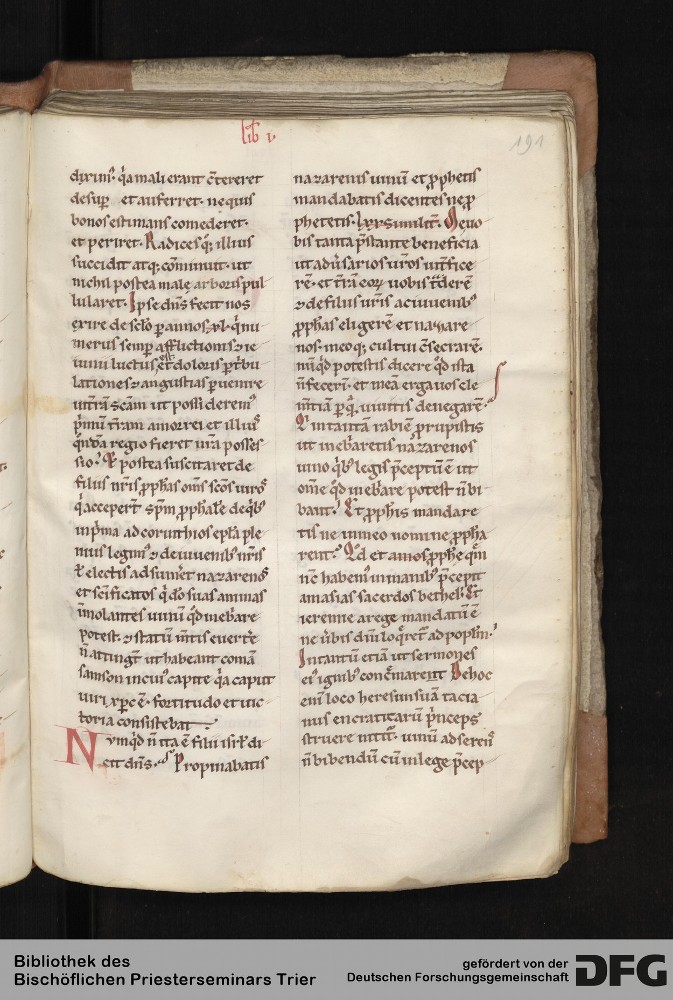 lib i.
191
dixim᷒. q̇a mali erant c̄tereret
desup̱ et auferret. nequis
bonos estimans comederet.
et periret. Radices q; illius
succidit atq; cōminuit. ut
nichil postea male arboris pul
lularet. Ipse dn̄s fecit nos
exire de sc̄lo p̱ annos .xl. q̇ nu
merus semp̱ afflictionis ⁊ ie
iunii luctus est et doloris
lationes ⁊ angustias p̱uenire
ṗmū t̄ram amorrei et illius
regio fieret
sio. Et postea suscitaret de
filiis nr̄is p̱phas om̄s sc̄os uiros
q̇ acceperт sp̄m
in ṗma ad corinthios epl̄a ple
nius legim᷒ ⁊ de iuuenib; nr̄is
ł electis adsumet nazareos
et sc̄ificatos q̇ do suas animas
īmolantes uinū q̇d inebriare
potest. ⁊ statū mtis euertē
n̄ attingт. ut habeant comā
samson in cui᷒ caput q̇a caput
uiri xp̄c ē. fortitudo et uic
toria consistebat.
Numq̇d n̄ ita ē filii isrl̄ di
cit dn̄s. Propinabatis
nazareis uinū et p̱phetis
mandabatis dicentes ne p̱
phetetis. lxx similit̄. Se uo
bis tanta p̄stante beneficia
ut adu̇sarios ur̄os
rē. et t̄rā eoꝝ uobis t̄derē
⁊ de filiis ur̄is ac iuuenib;
p̱phas eligerē et nazare
nos. meoq; cultui c̄secrarē.
nūq̇d potestis dicere q̇d ista
n̄ fecerī. et meā erga uos cle
m̄tiā p̱ q̄ uiuitis denegare.
In tantā rabiē p̱rupistis
ut inebriaretis nazarenos
uino q̇b; legis p̄ceptū ē ut
om̄e q̇d inebriare potest n̄ bi
bant. Et p̱phis mandare
tis ne in meo nomine p̱pha
rent. Q̇d et amos p̱phe q̄m
nc̄ habem᷒ in manib; p̄cepit
amasias sacerdos bethel. Et
ieremie a rege mandatū ē
ne uerbis dn̄i loq̇ret̄ ad popl̄m.
In tantū etiā ut sermones
ei᷒ ignib; con̄marent. De hoc
eni loco heresim suā tacia
nus encratitarū ṗnceps
struere nitit̄. uinū adserens
n̄ bibendū cū in lege p̄cep
Bibliothek des
Bischöflichen Priesterseminars Trier
gefördert von der
Deutschen Forschungsgemeinschaft
DFG